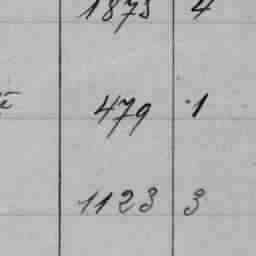 1873 4
479 1
1123 3